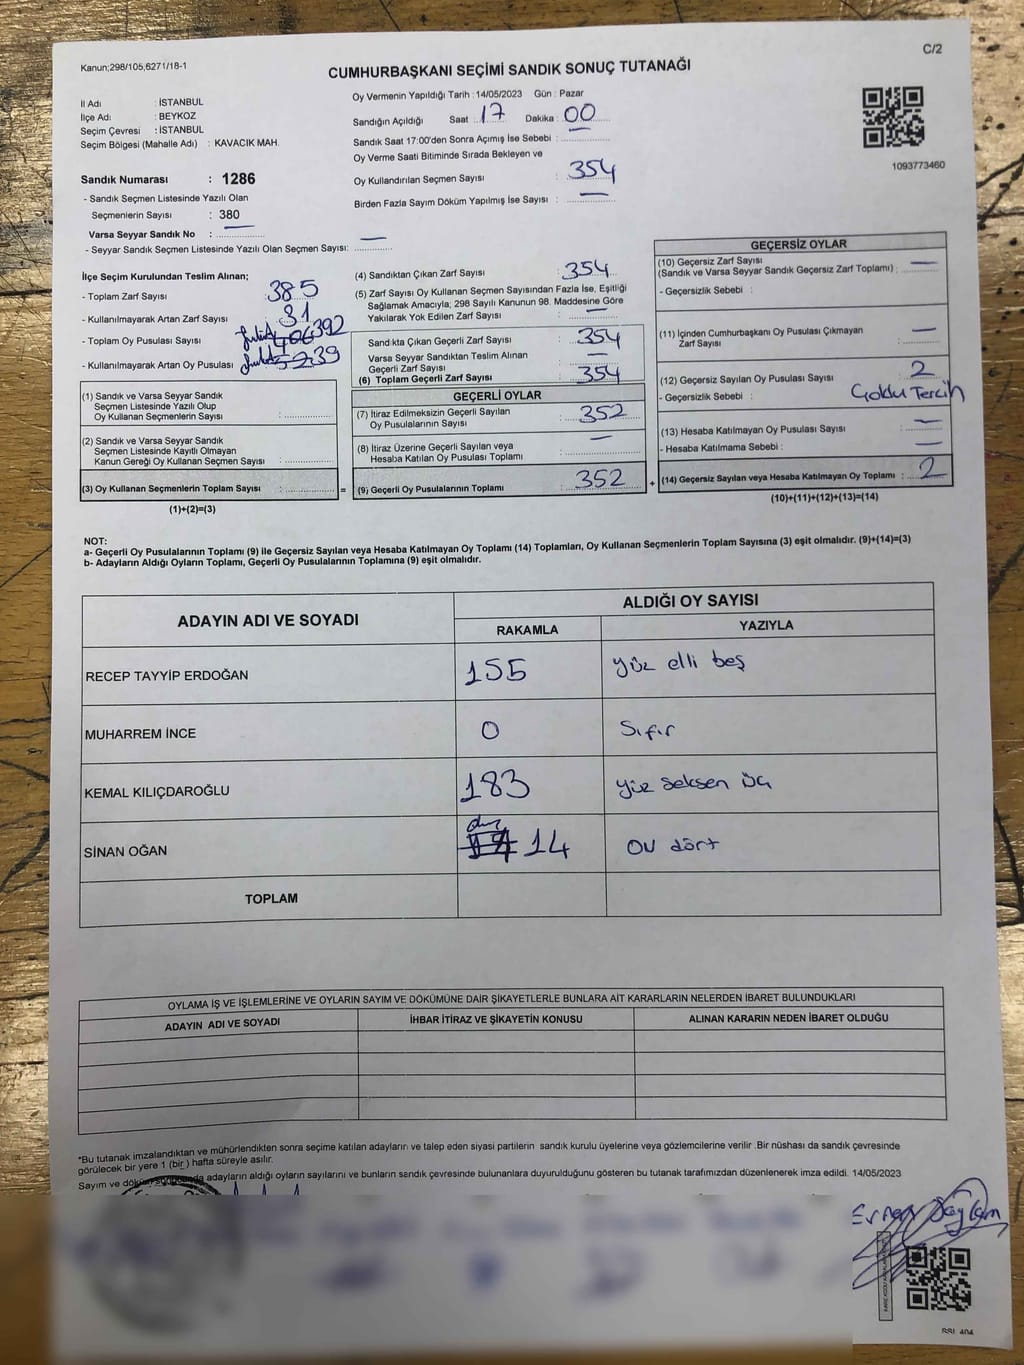 Kanun;298/105,6271/18-1
C/2
CUMHURBAŞKANI SEÇİMİ SANDIK SONUÇ TUTANAĞI
İl Adı : İSTANBUL
İlçe Adı : BEYKOZ
Seçim Çevresi : İSTANBUL
Seçim Bölgesi (Mahalle Adı) : KAVACIK MAH.
Sandık Numarası : 1286
- Sandık Seçmen Listesinde Yazılı Olan
Seçmenlerin Sayısı : 380
Varsa Seyyar Sandık No : —
- Seyyar Sandık Seçmen Listesinde Yazılı Olan Seçmen Sayısı: —
Oy Vermenin Yapıldığı Tarih : 14/05/2023 Gün : Pazar
Sandığın Açıldığı Saat : 17 Dakika : 00
Sandık Saat 17:00'den Sonra Açımış İse Sebebi : —
Oy Verme Saati Bitiminde Sırada Bekleyen ve
Oy Kullandırılan Seçmen Sayısı : 354
Birden Fazla Sayım Döküm Yapılmış İse Sayısı : —
1093773460
İlçe Seçim Kurulundan Teslim Alınan;
- Toplam Zarf Sayısı : 385
- Kullanılmayarak Artan Zarf Sayısı : 31
- Toplam Oy Pusulası Sayısı 392
- Kullanılmayarak Artan Oy Pusulası 39
(1) Sandık ve Varsa Seyyar Sandık
Seçmen Listesinde Yazılı Olup
Oy Kullanan Seçmenlerin Sayısı :
(2) Sandık ve Varsa Seyyar Sandık
Seçmen Listesinde Kayıtlı Olmayan
Kanun Gereği Oy Kullanan Seçmen Sayısı :
(3) Oy Kullanan Seçmenlerin Toplam Sayısı :
(1)+(2)=(3)
(4) Sandıktan Çıkan Zarf Sayısı : 354
(5) Zarf Sayısı Oy Kullanan Seçmen Sayısından Fazla İse, Eşitliği
Sağlamak Amacıyla; 298 Sayılı Kanunun 98. Maddesine Göre
Yakılarak Yok Edilen Zarf Sayısı : —
Sandıkta Çıkan Geçerli Zarf Sayısı : 354
Varsa Seyyar Sandıktan Teslim Alınan
Geçerli Zarf Sayısı : —
(6) Toplam Geçerli Zarf Sayısı : 354
GEÇERLİ OYLAR
(7) İtiraz Edilmeksizin Geçerli Sayılan
Oy Pusulalarının Sayısı : 352
(8) İtiraz Üzerine Geçerli Sayılan veya
Hesaba Katılan Oy Pusulası Toplamı : —
= (9) Geçerli Oy Pusulalarının Toplamı : 352
GEÇERSİZ OYLAR
(10) Geçersiz Zarf Sayısı
(Sandık ve Varsa Seyyar Sandık Geçersiz Zarf Toplamı) : —
- Geçersizlik Sebebi :
(11) İçinden Cumhurbaşkanı Oy Pusulası Çıkmayan
Zarf Sayısı : —
(12) Geçersiz Sayılan Oy Pusulası Sayısı : 2
- Geçersizlik Sebebi : Çoklu Tercih
(13) Hesaba Katılmayan Oy Pusulası Sayısı : —
- Hesaba Katılmama Sebebi : —
+ (14) Geçersiz Sayılan veya Hesaba Katılmayan Oy Toplamı : 2
(10)+(11)+(12)+(13)=(14)
NOT:
a- Geçerli Oy Pusulalarının Toplamı (9) ile Geçersiz Sayılan veya Hesaba Katılmayan Oy Toplamı (14) Toplamları, Oy Kullanan Seçmenlerin Toplam Sayısına (3) eşit olmalıdır. (9)+(14)=(3)
b- Adayların Aldığı Oyların Toplamı, Geçerli Oy Pusulalarının Toplamına (9) eşit olmalıdır.
ADAYIN ADI VE SOYADI
ALDIĞI OY SAYISI
RAKAMLA YAZIYLA
RECEP TAYYİP ERDOĞAN 155 yüz elli beş
MUHARREM İNCE 0 Sıfır
KEMAL KILIÇDAROĞLU 183 yüz seksen üç
SİNAN OĞAN 14 on dört
TOPLAM
OYLAMA İŞ VE İŞLEMLERİNE VE OYLARIN SAYIM VE DÖKÜMÜNE DAİR ŞİKAYETLERLE BUNLARA AİT KARARLARIN NELERDEN İBARET BULUNDUKLARI
ADAYIN ADI VE SOYADI İHBAR İTİRAZ VE ŞİKAYETİN KONUSU ALINAN KARARIN NEDEN İBARET OLDUĞU
*Bu tutanak imzalandıktan ve mühürlendikten sonra seçime katılan adayların ve talep eden siyasi partilerin sandık kurulu üyelerine veya gözlemcilerine verilir .Bir nüshası da sandık çevresinde
görülecek bir yere 1 (bir ) hafta süreyle asılır.
Sayım ve döküm adayların aldığı oyların sayılarını ve bunların sandık çevresinde bulunanlara duyurulduğunu gösteren bu tutanak tarafımızdan düzenlenerek imza edildi. 14/05/2023